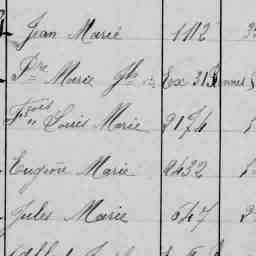 Jean Marie 1112
Pre Marie Jh Ex 31 Rennes
Fçois Louis Marie 2174
Eugène Marie 2432
Jules Marie 647